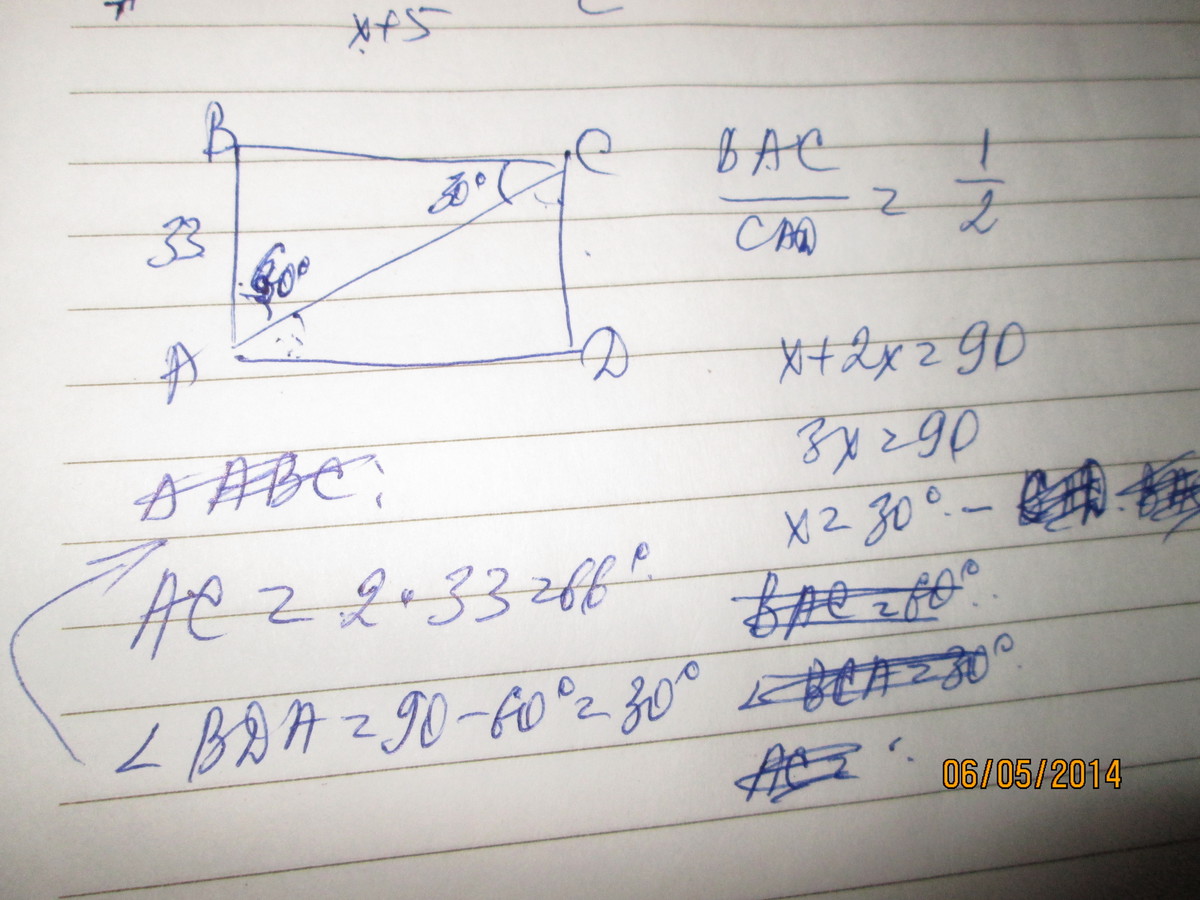 x+5
B
C
30°
33
60°
A
D
BAC
CAD
= 1/2
x+2x=90
3x=90
x=30°-
Δ ABC:
AC = 2·33=66°
BAC=60°
∠ BCA=30°
∠ BDA=90-60°=30°
AC=
06/05/2014